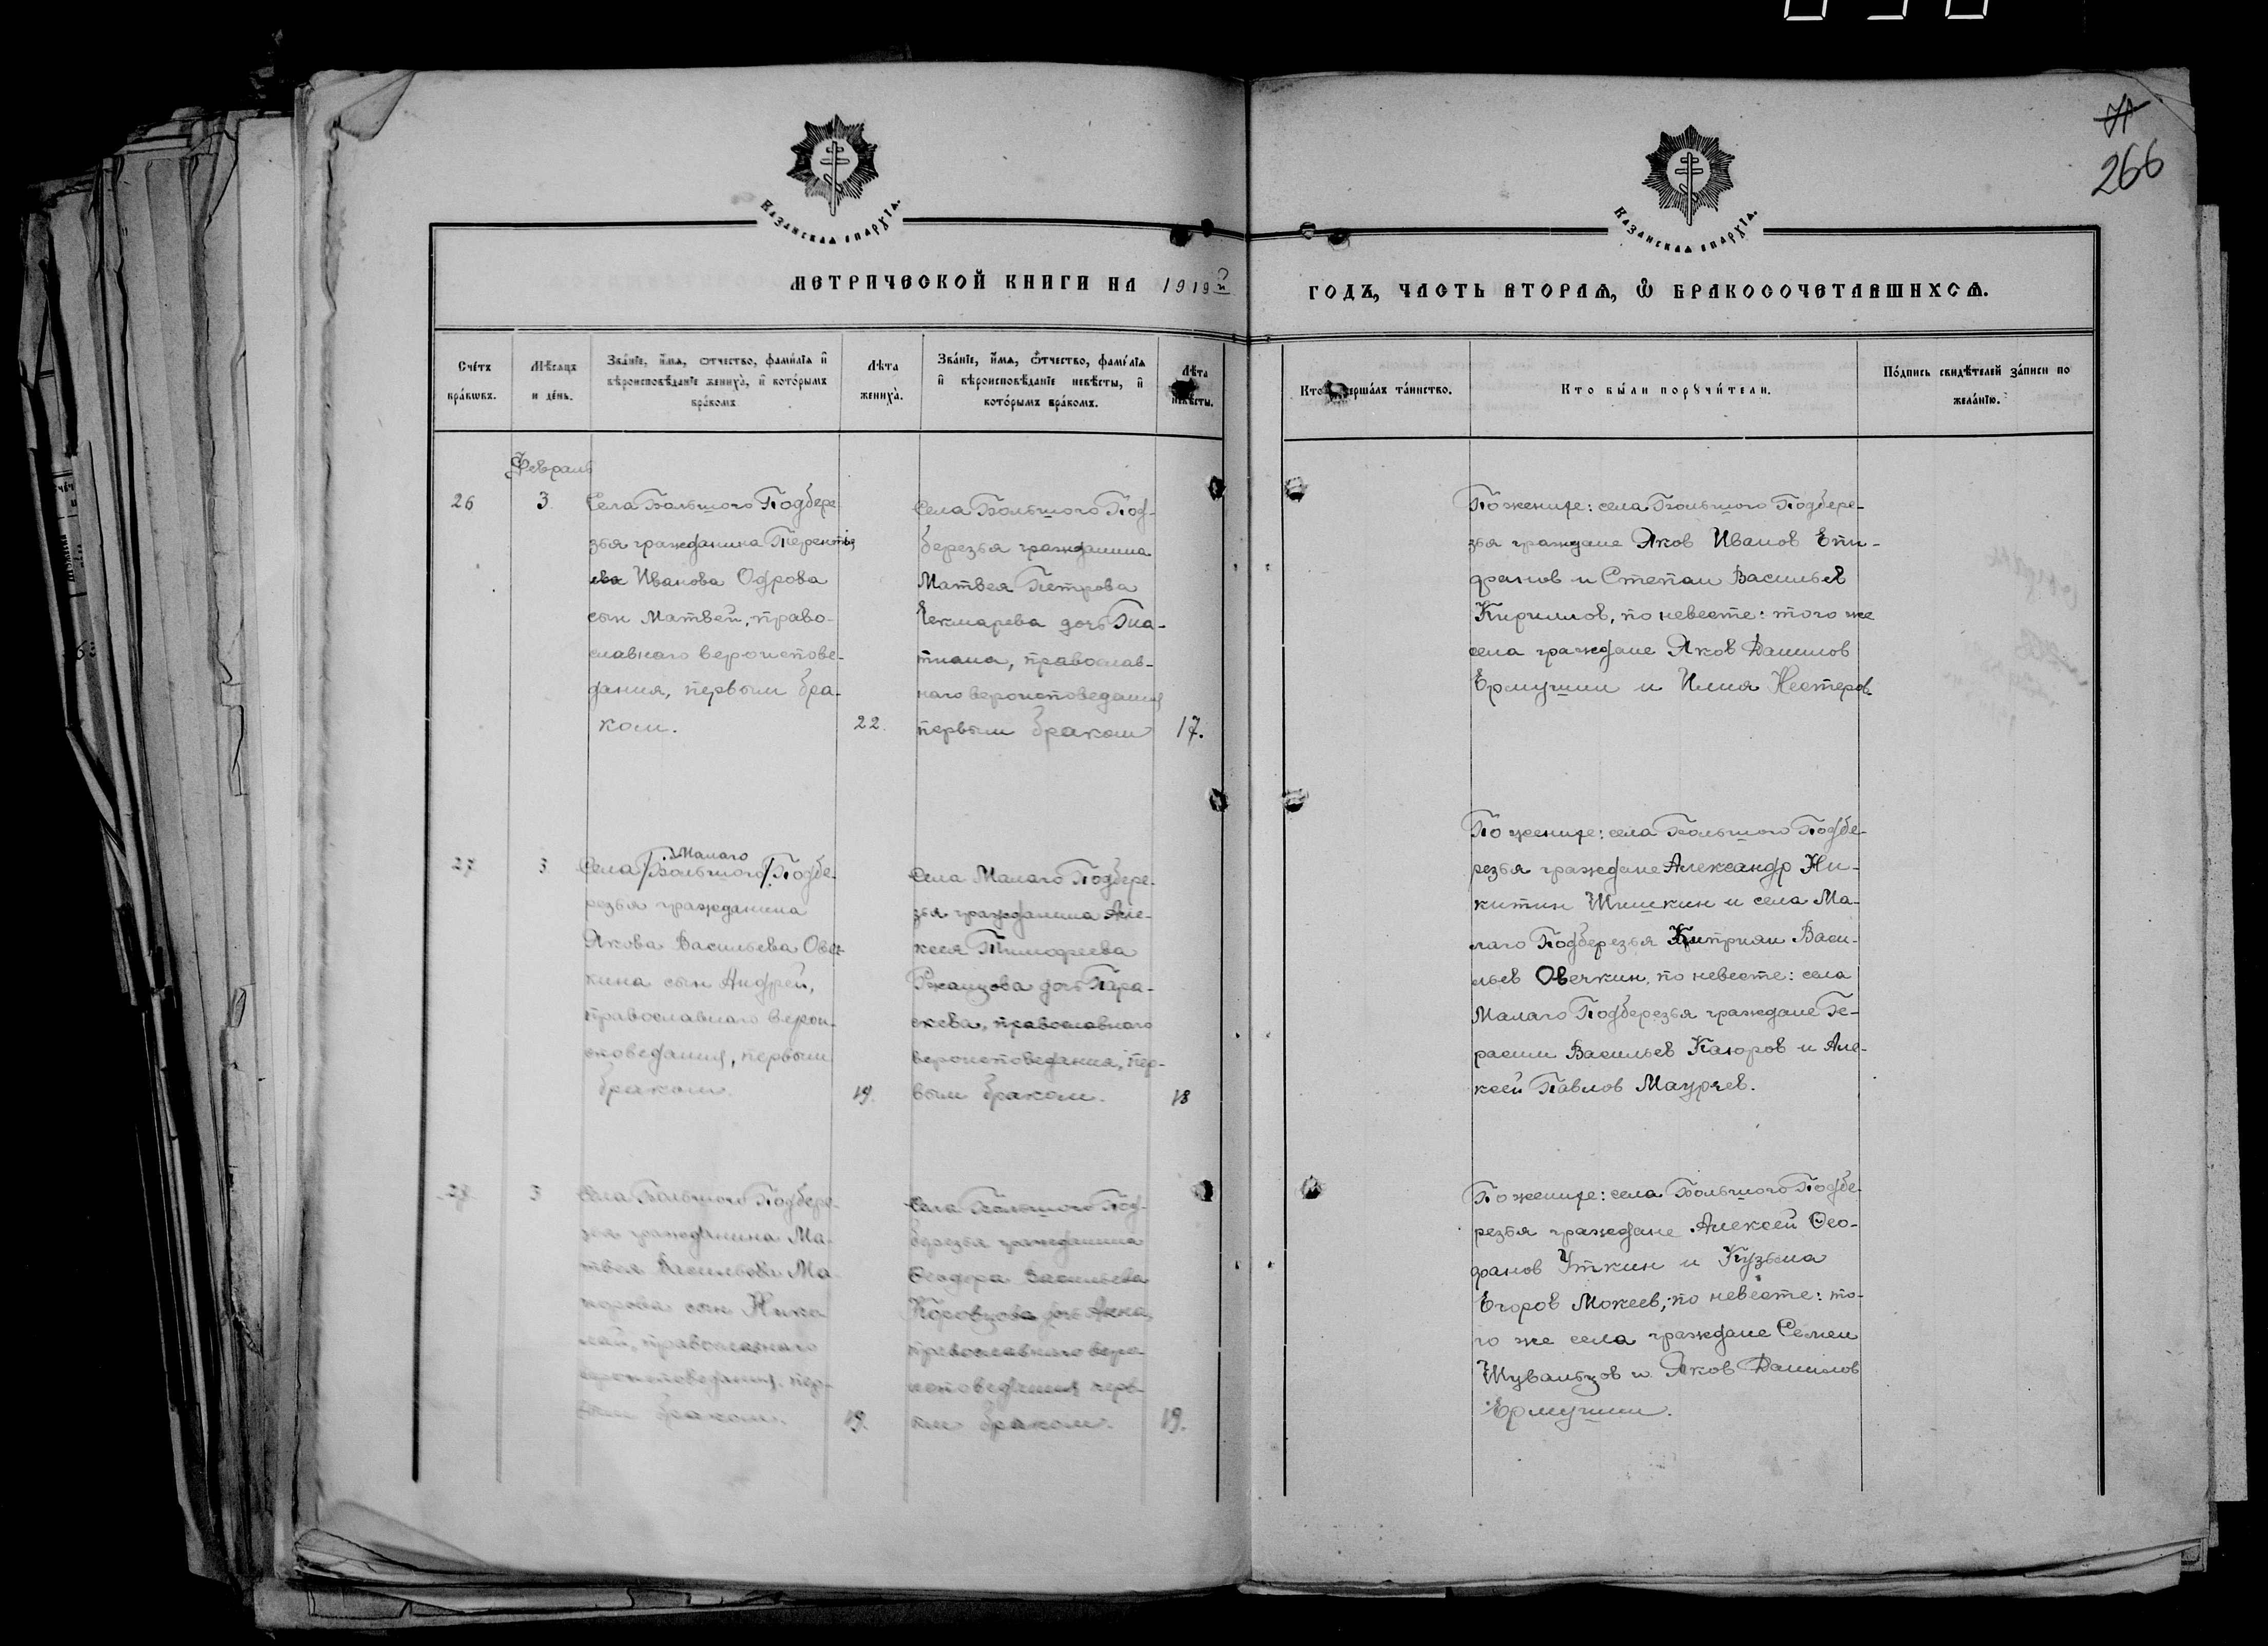 266
Казанская епархїа.
Казанская епархїа.
Метрической книги на 1919й
годъ, часть вторая, ѡ бракосочетавшихся.
Счетъ браковъ.
Мѣсяцъ и день.
Званїе, имя, отчество, фамилїя и вѣроисповѣданїе жениха, и которымъ бракомъ
Лѣта жениха.
Званїе, имя, ѿчество, фамилїя и вѣроисповѣданїе невѣсты, и которымъ бракомъ.
Лѣта невѣсты.
Кто совершалъ таинство.
Кто были поручители.
Подпись свидѣтелей записи по желанїю.
Февраль
26
3
Села Большого Подбере
зья гражданина Терентье
ева Иванова Одрова
сын Матвей, право-
славнаго вероиспове-
дания, первым бра-
ком.
22.
Села Большого Под-
березья гражданина
Матвея Петрова
Чекмарева дочь
православ-
наго вероисповедания
первым браком
17.
По женихе: села Большого Подбере-
зья граждане Яков Иванов Епи-
фанов и Степан Васильев
Кириллов, по невесте: того же
села граждане Яков Данилов
Ермушин и Илия Нестеров
27
3
Малаго
Села /Большого/ Подбе-
резья гражданина
Якова Васильева Овеч-
кина сын Андрей,
православнаго верои-
споведания, первым
браком.
19.
Села Малаго Подбере-
зья гражданина Але-
ксея Тимофеева
Ржанцова дочь Пара-
скева, православнаго
вероисповедания, пер-
вым браком.
18
По женихе: села Большого Подбе-
резья граждане Александр Ни-
китин Шишкин и села Ма-
лаго Подберезья Киприан Васи-
льев Овечкин, по невесте: села
Малаго Подберезья граждане Ге-
расим Васильев Каюров и Але-
ксей Павлов Мауряев.
28
3
Села Большого Подбере-
зья гражданина Ма-
твея Васильева Ма-
карова сын Нико-
лай, православнаго
вероисповедания, пер-
вым браком.
19.
Села Большого Под-
березья гражданина
Феодора Васильева
Коровцова дочь Анна,
православнаго веро-
исповедания перв-
ым браком.
19.
По женихе: села Большого Подбе-
резья граждане Алексей Фео-
фанов Уткин и Кузьма
Егоров Мокеев, по невесте: то-
го же села граждане Семен
Шувальцов и Яков Данилов
Ермушин.